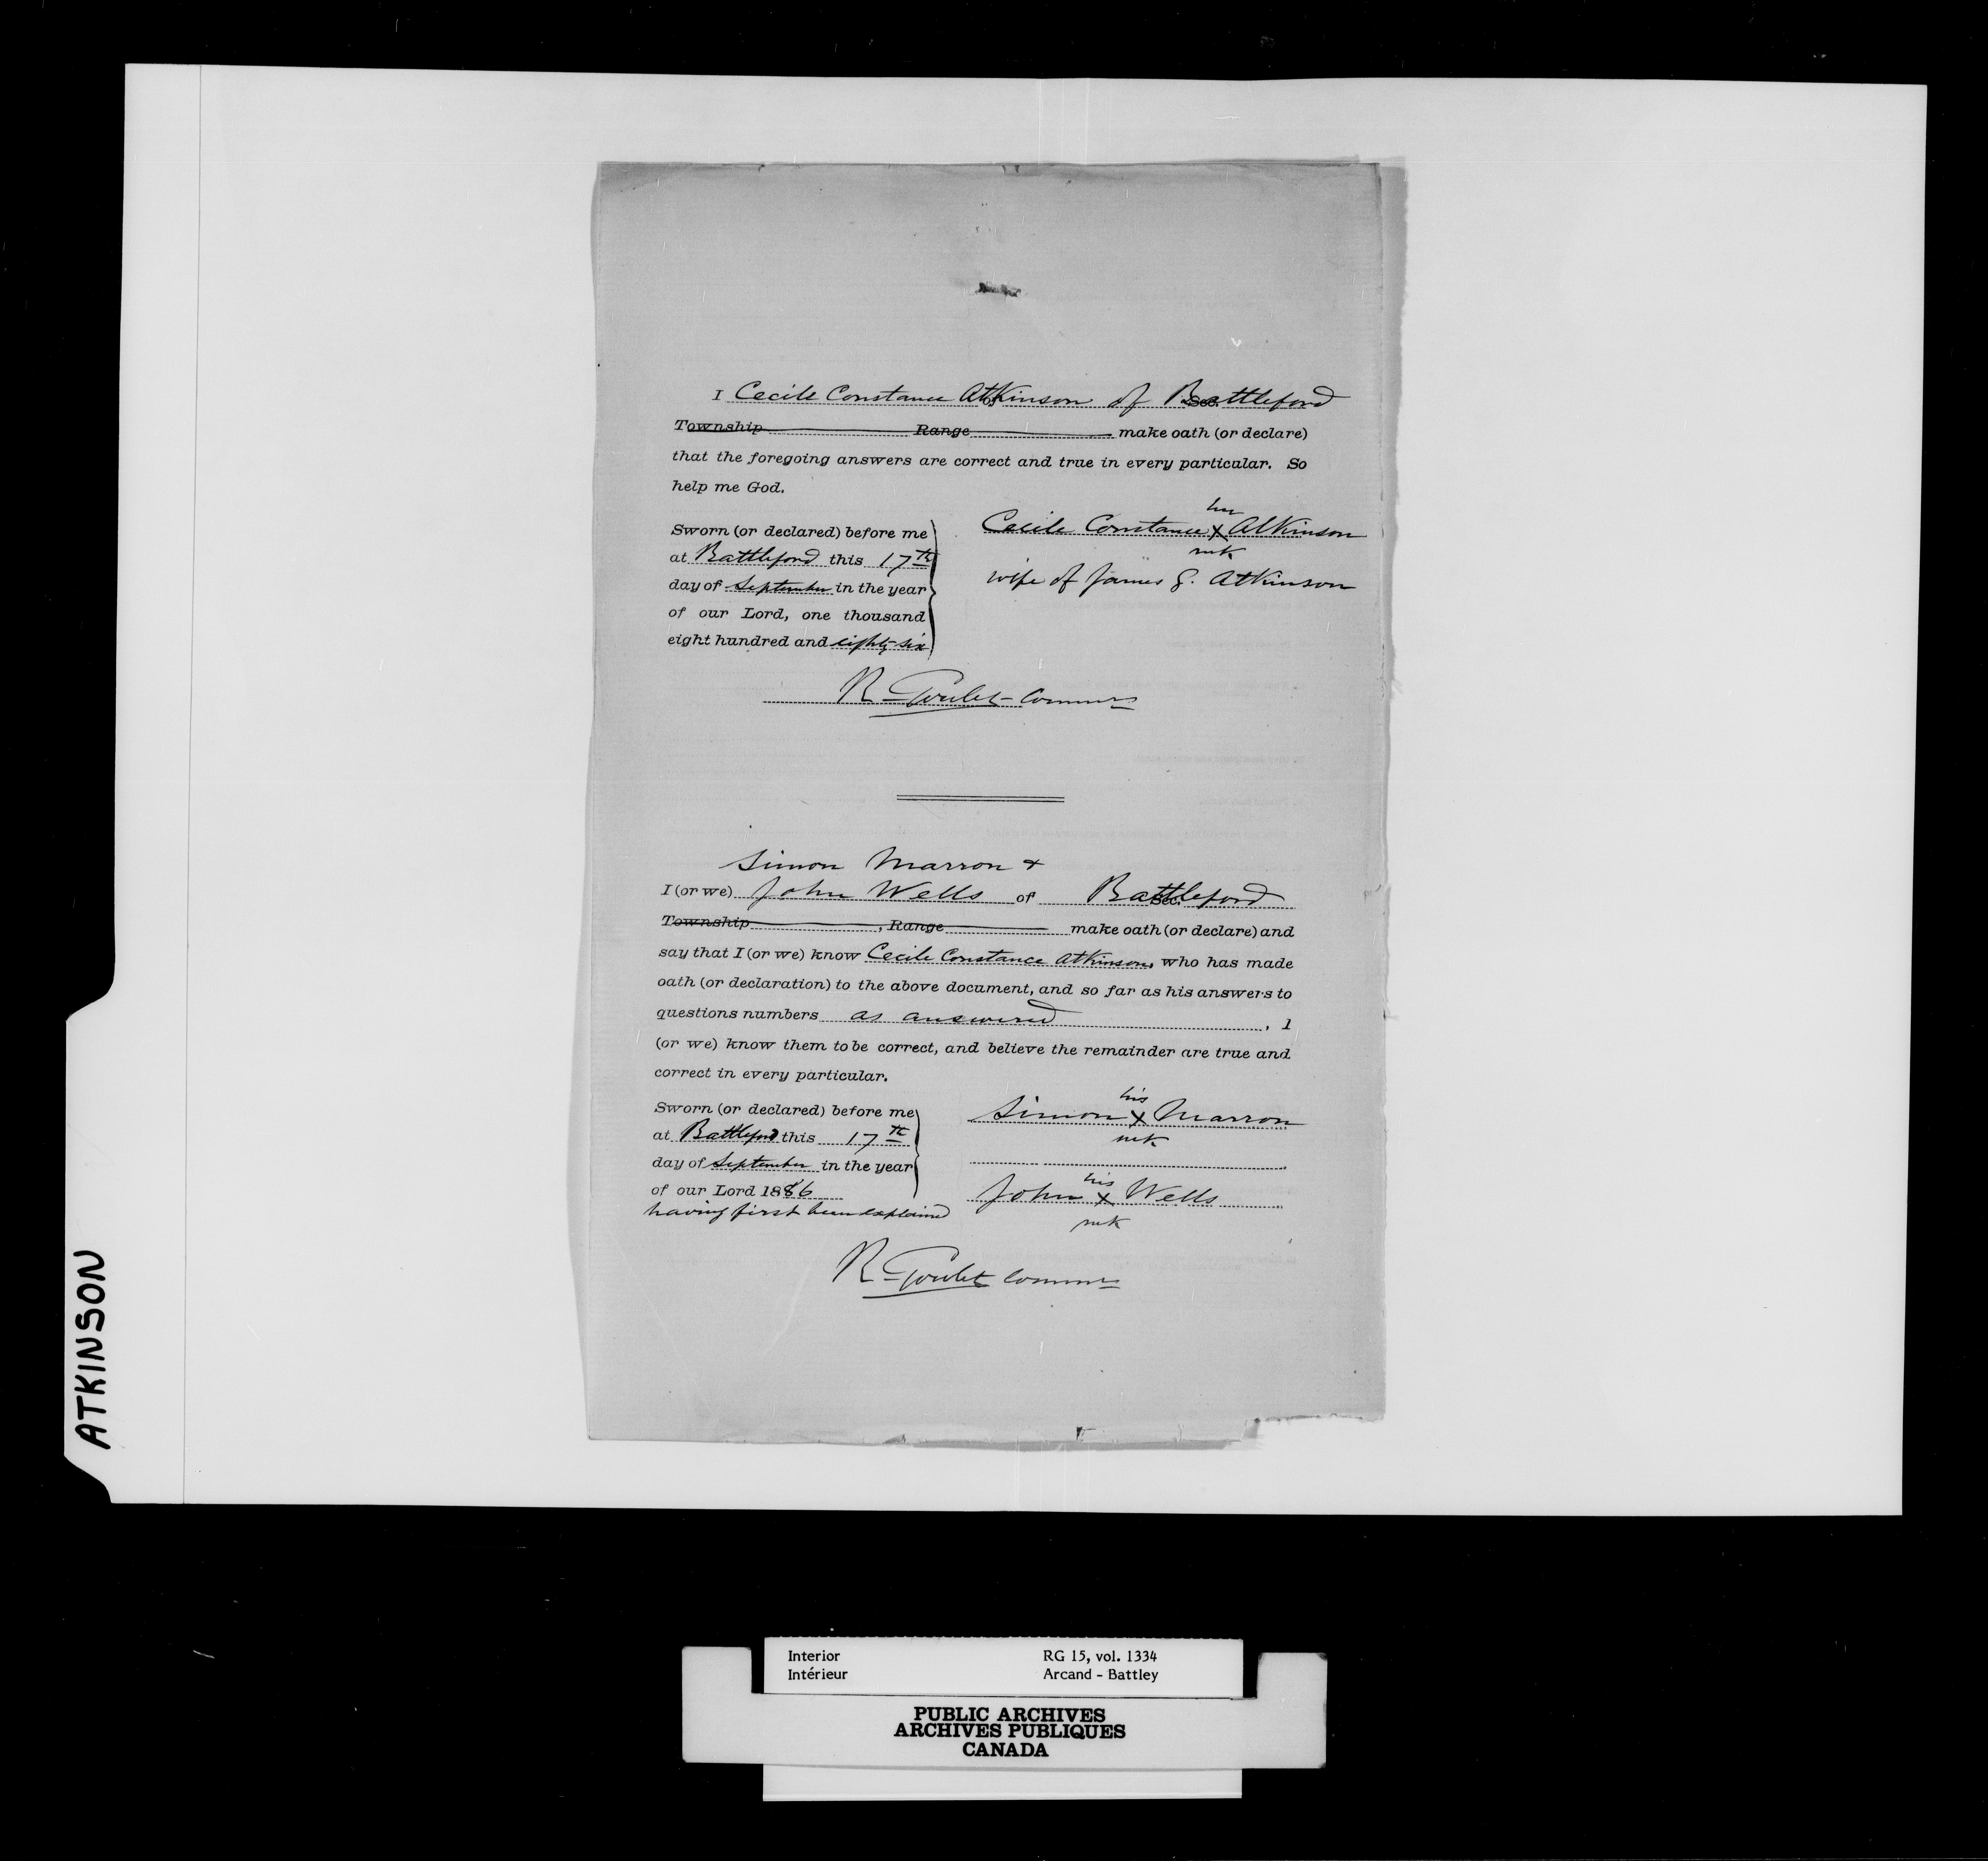 I Cecile Constance Atkinson of Battleford
Township Range make oath (or declare)
that the foregoing answers are correct and true in every particular. So
help me God.
Sworn (or declared) before me
at Battleford this 17th
day of September in the year
of our Lord, one thousand
eight hundred and eighty-six
her
Cecile Constance X Atkinson
mk
wife of James G. Atkinson
R Goulet Commrs
Simon Marron &
I (or we) John Wells of Sec. Battleford
Township , Range make oath (or declare) and
say that I (or we) know Cecile Constance Atkinson, who has made
oath (or declaration) to the above document, and so far as his answers to
questions numbers as answered , I
(or we) know them to be correct, and believe the remainder are true and
correct in every particular.
Sworn (or declared) before me
at Battleford this 17th
day of September in the year
of our Lord 1886
having first been explained
his
Simon X Marron
mk
his
John X Wells
mk
R Goulet Commrs
ATKINSON
Interior RG 15, vol. 1334
Intérieur Arcand - Battley
PUBLIC ARCHIVES
ARCHIVES PUBLIQUES
CANADA